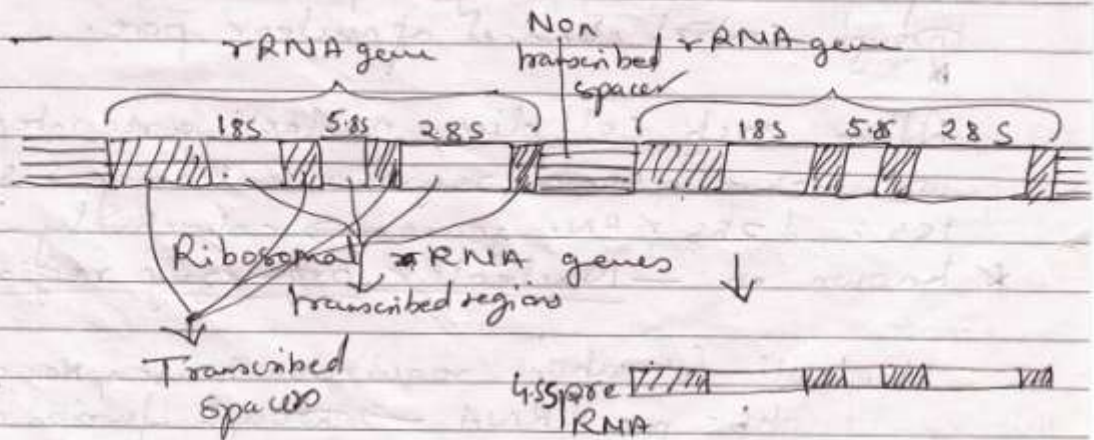 rRNA gene
Non transcribed spacer
rRNA gene
18S 5.8S 28S
18S 5.8S 28S
Ribosomal rRNA genes
transcribed regions
Transcribed spacers
45S pre RNA